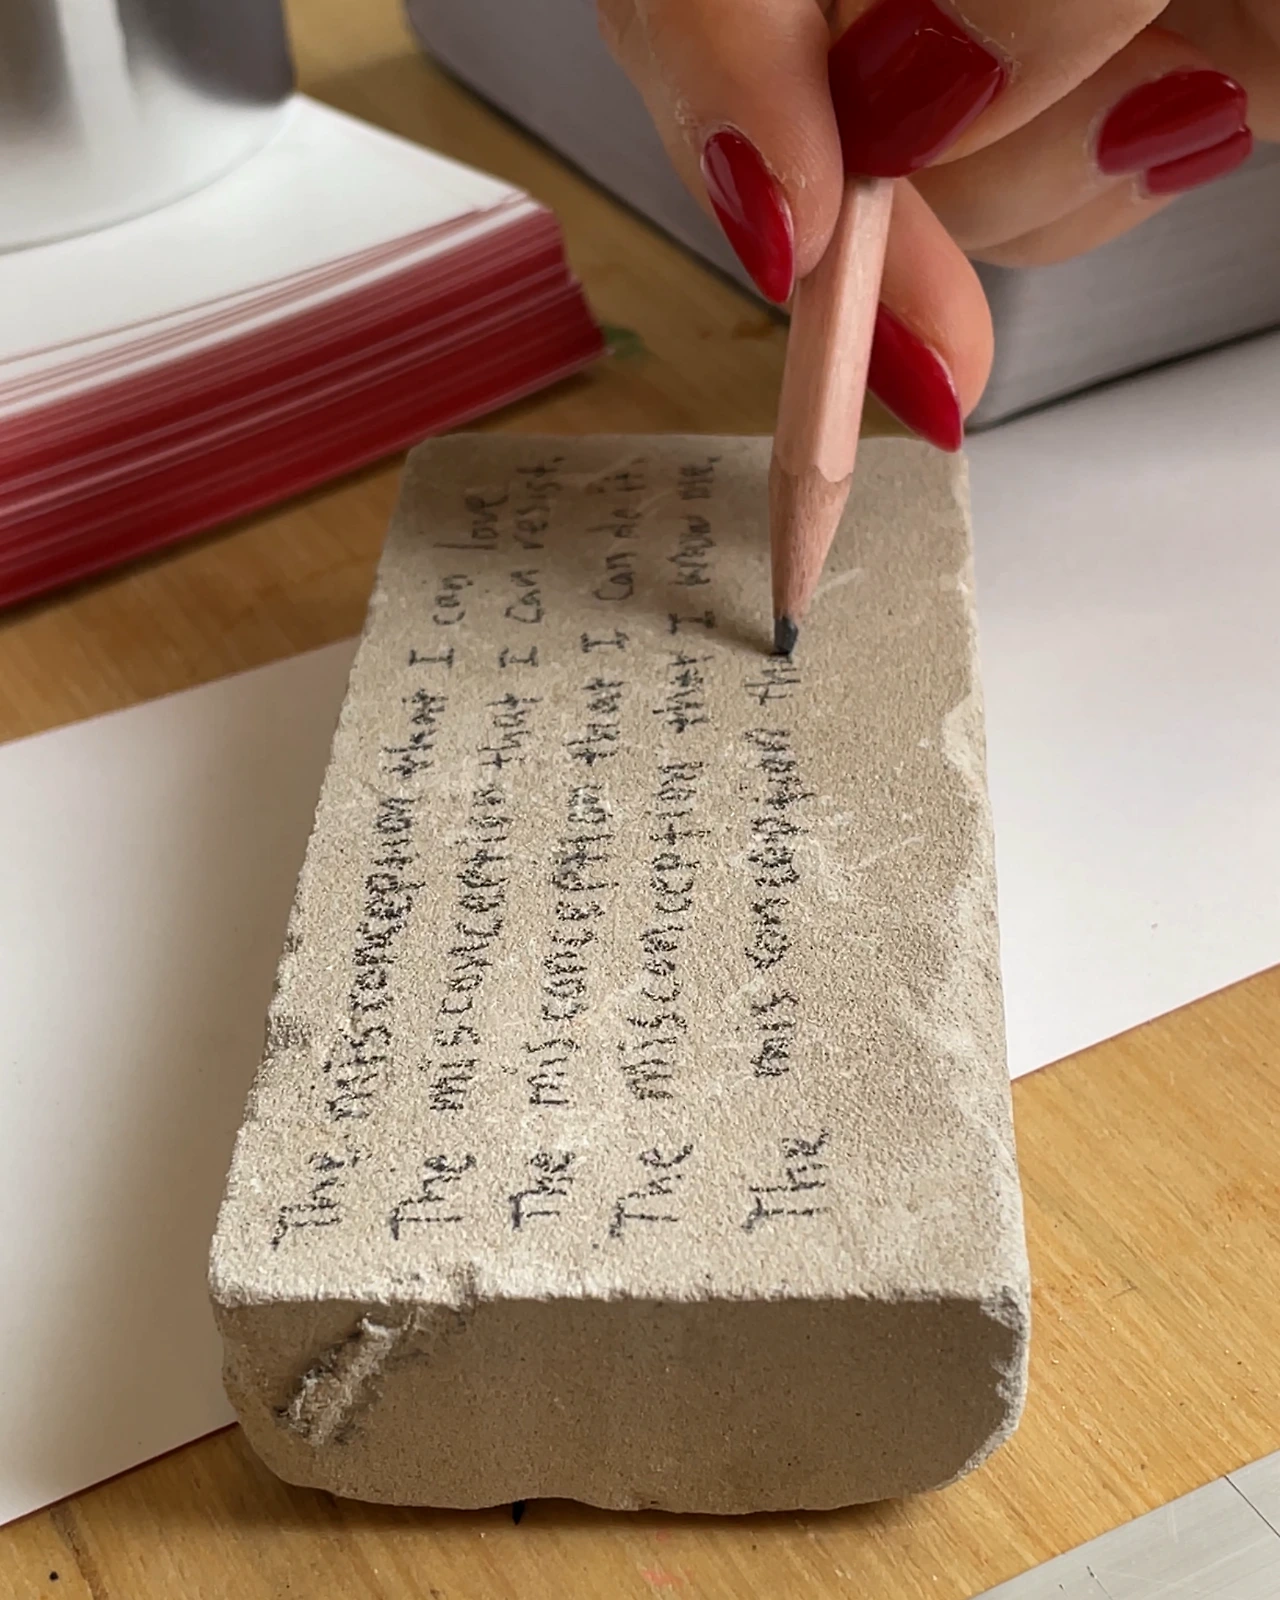 The misconception that I can love
The misconception that I can resist.
The misconception that I can do it.
The misconception that I know me.
The misconception th